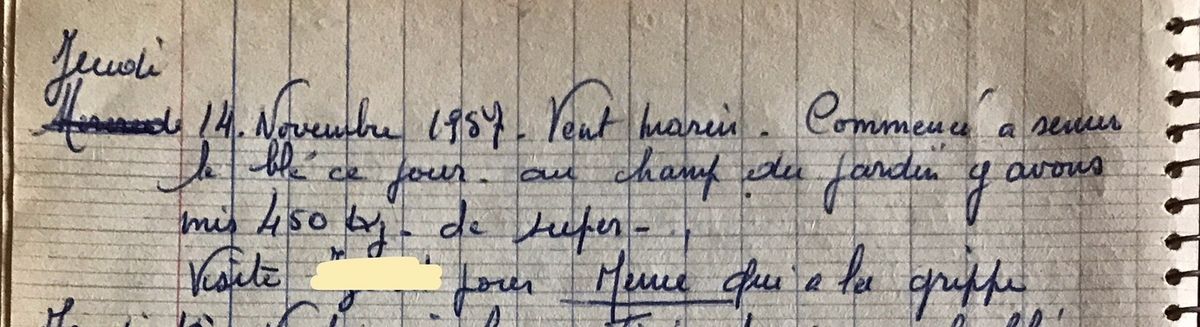 Jeudi
14. Novembre 1957. Vent marin. Commencé a semer
le blé ce jour. au champ du jardin y avons
mis 450 kg. de super.
Visite pour Meme qui a la grippe